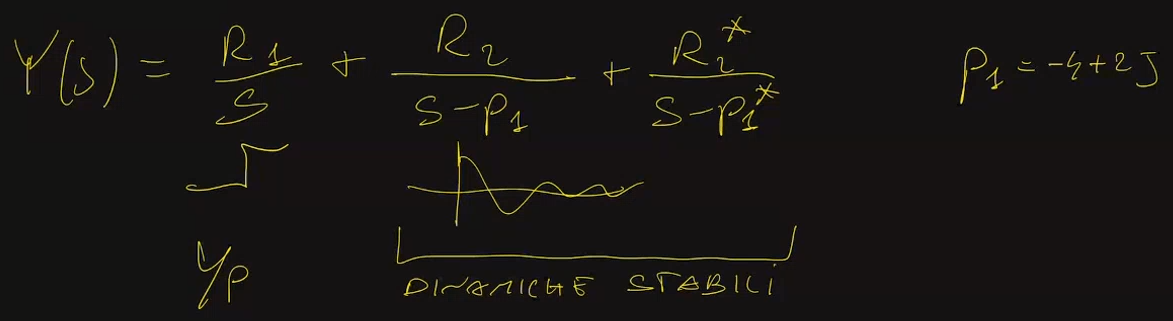 Y(s) = R1/S + R2/(S-P1) + R2*/(S-P1*)    P1 = -4+2J
Y/P
DINAMICHE STABILI